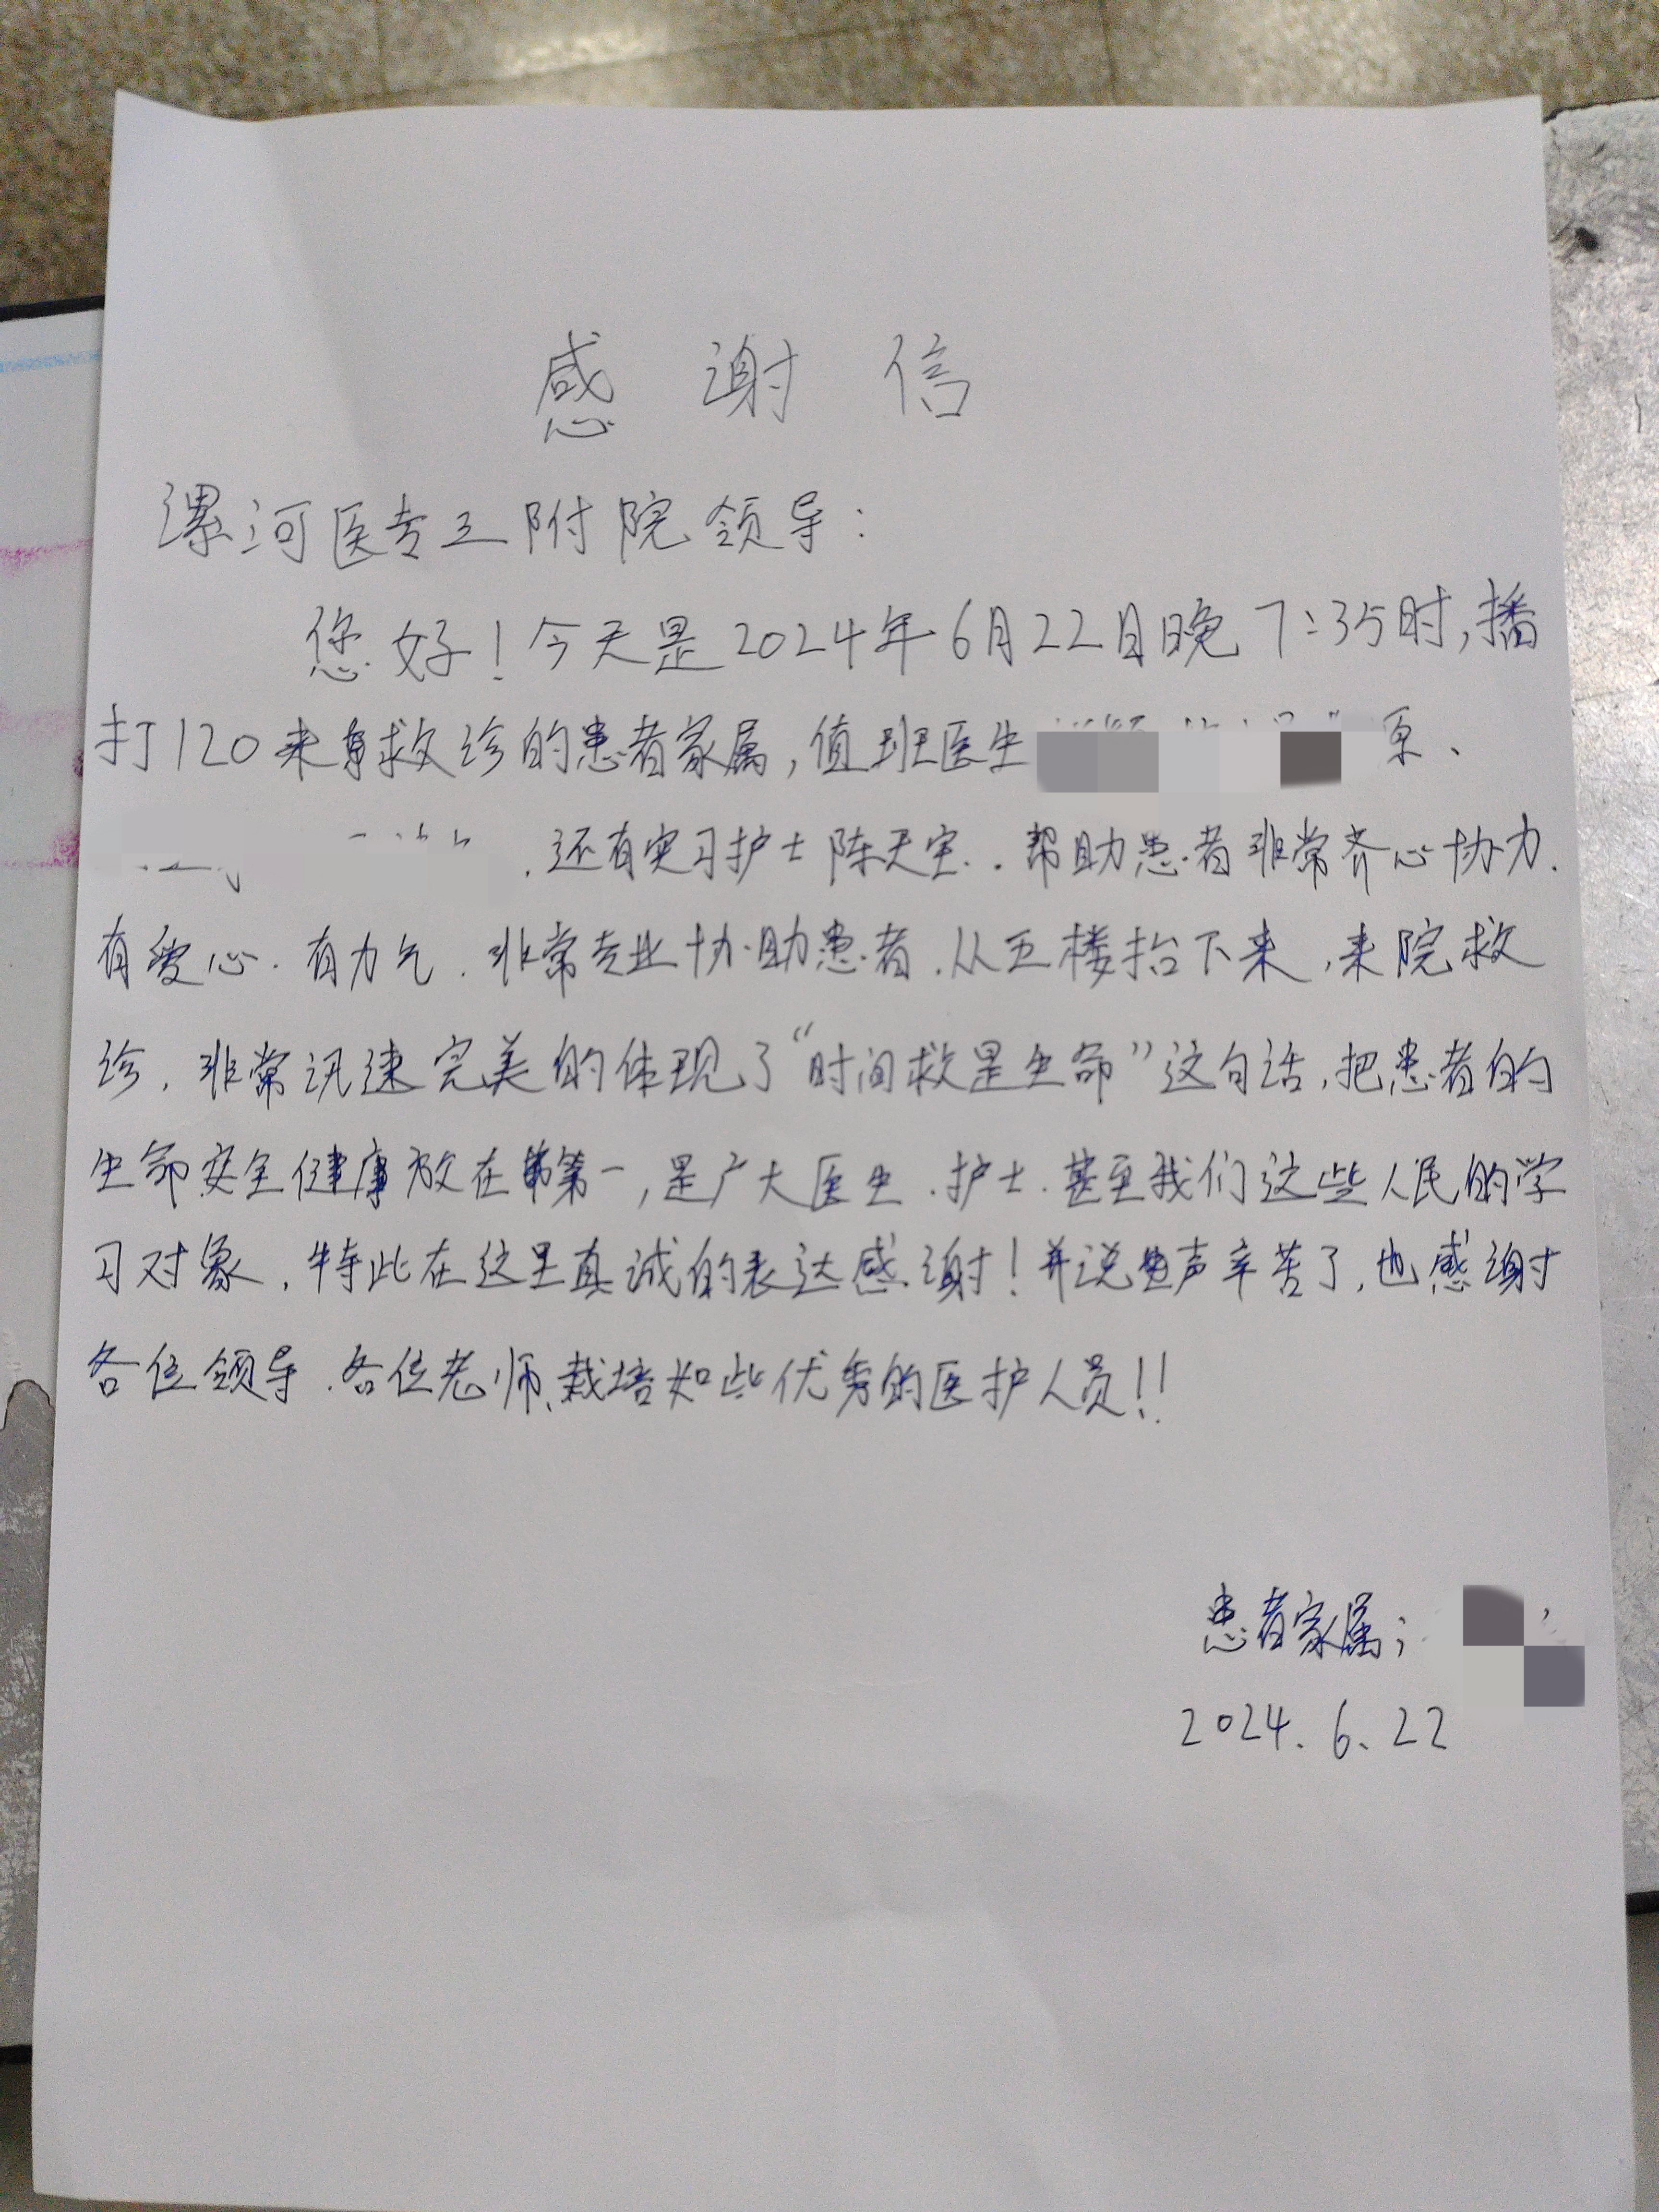 感谢信
漯河医专三附院领导：
您好！今天是2024年6月22日晚7:35时，播
打120来救诊的患者家属，值班医生
还有实习护士陈天宝．帮助患者非常齐心协力．
有爱心．有力气．非常专业协助患者．从五楼抬下来，来院救
诊，非常讯速完美的体现了“时间救是生命”这句话，把患者的
生命安全健康放在第一，是广大医生．护士．甚至我们这些人民的学
习对象，特此在这里真诚的表达感谢！并说声辛苦了，也感谢
各位领导．各位老师、栽培如些优秀的医护人员！！
患者家属；
2024.6.22